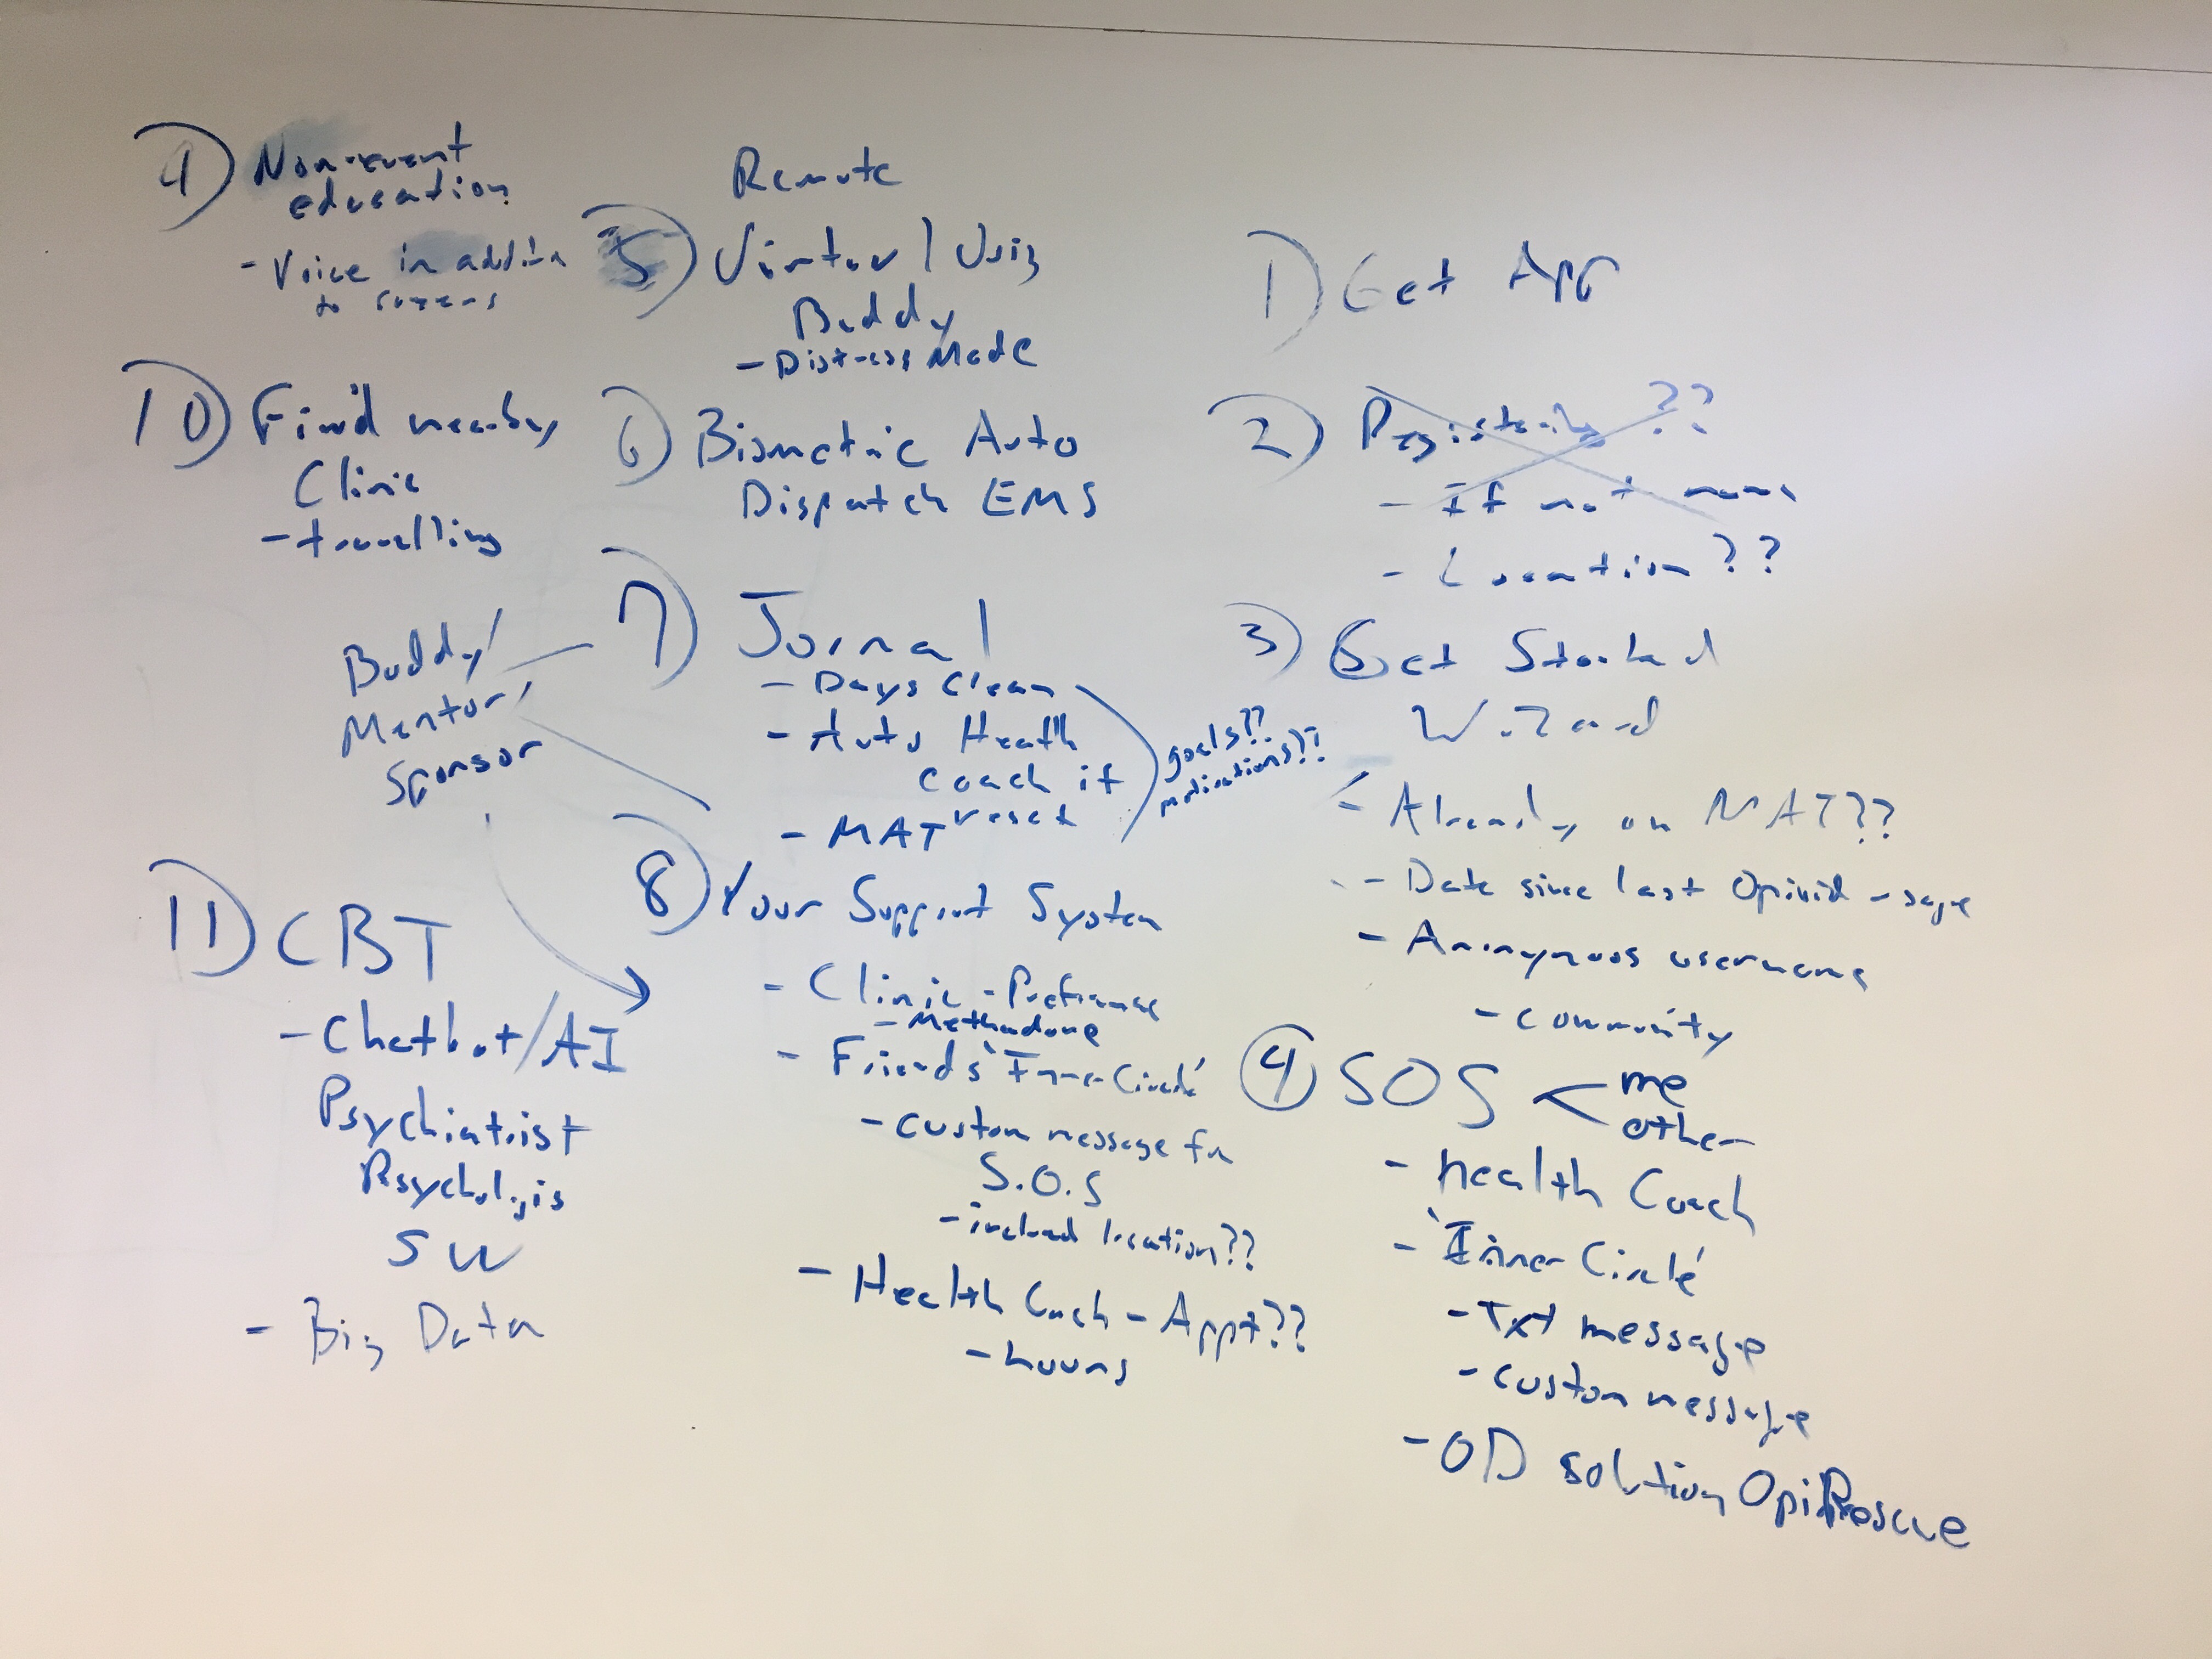 1) Get App
2) Registering ??
- If not
- Location ??
3) Get Started
Wizard
- Already on MAT??
- Date since last Opioid usage
- Anonymous username
- community
4) SOS < me
other
- Health Coach
- 'Inner Circle'
- Txt message
- custom message
- OD solution OpiRescue
Remote
5) Virtual Using
Buddy
- Distress Mode
6) Biometric Auto
Dispatch EMS
7) Jornal
- Days Clean
- Auto Heath
coach if
reset
- MAT
goals??
motivations??
8) Your Support System
- Clinic - Prefrance
- Methadone
- Friends 'Inner Circle'
- custom message for
S.O.S
- include location??
- Health Coach - Appt??
- hours
9) Non-event
education
- Voice in addition
to screens
10) Find nearby
Clinic
- travelling
Buddy/
Mentor/
Sponsor
11) CBT
- Chatbot/AI
Psychiatrist
Psychologis
SW
- Big Data